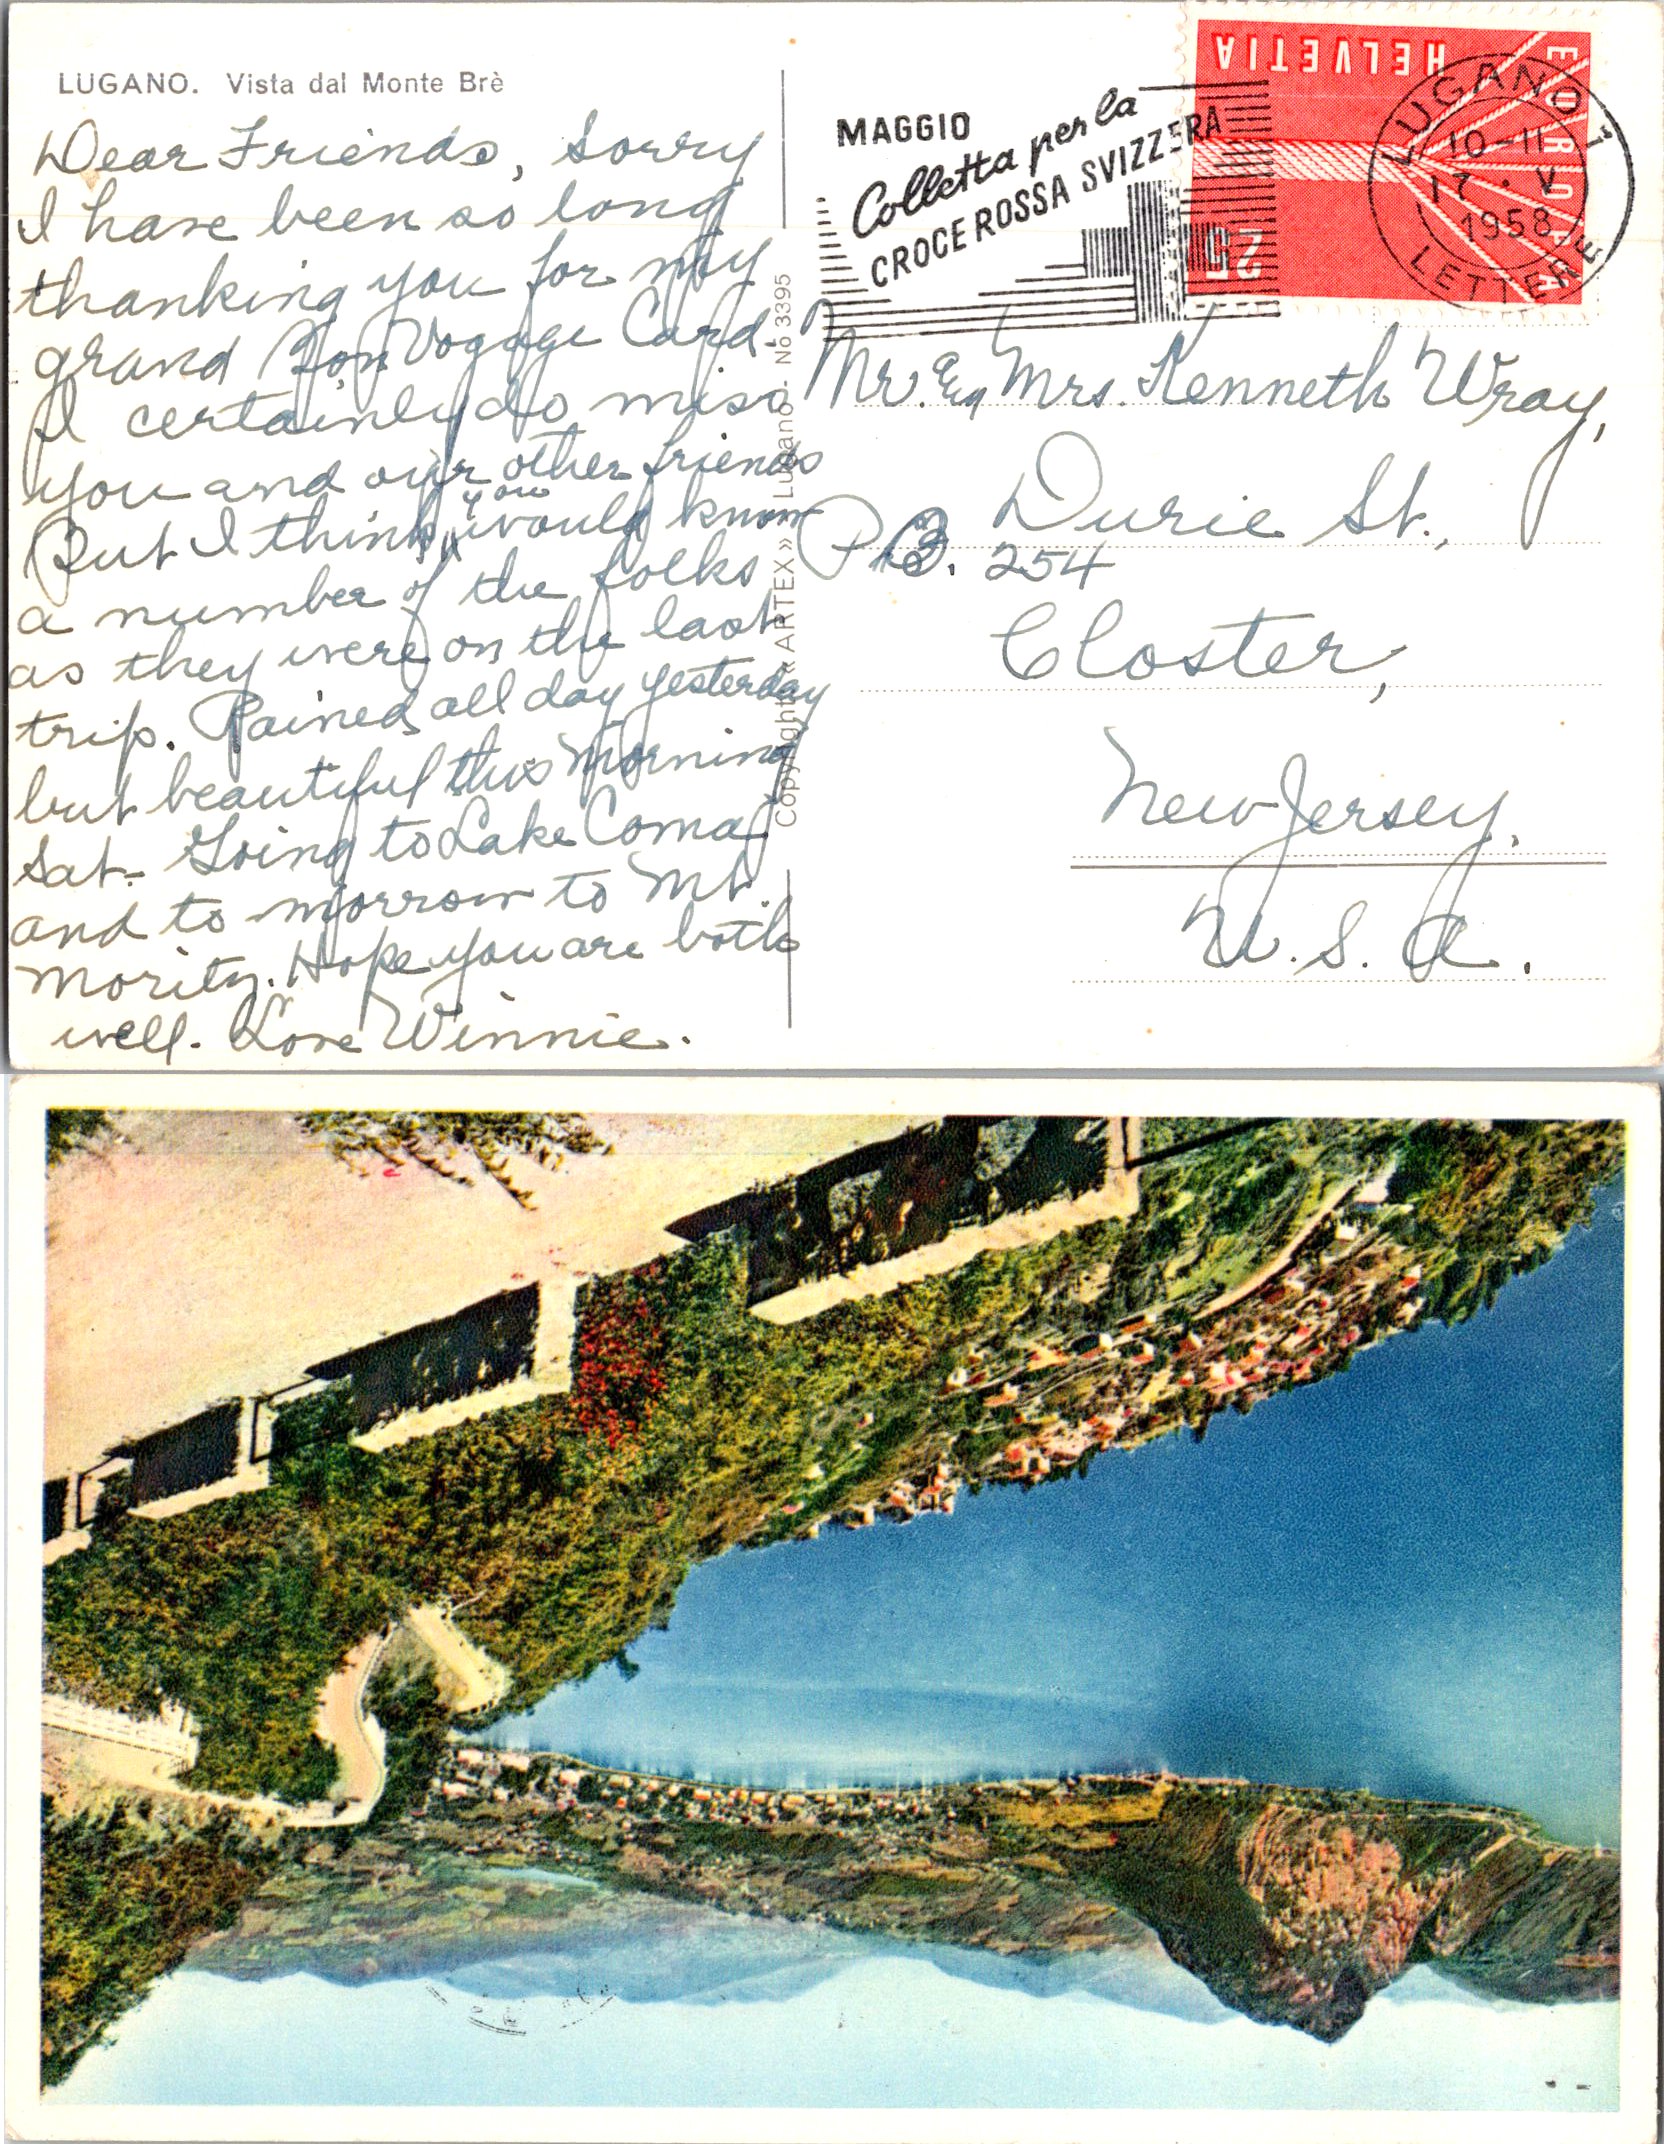 LUGANO. Vista dal Monte Brè
Dear Friends, Sorry
I have been so long
thanking you for my
grand Bon Voyage Card.
I certainly do miss
you and our other friends
But I think you would know
a number of the folks
as they were on the last
trip. Rained all day yesterday
but beautiful this Morning
Sat- Going to Lake Coma
and to morrow to Mt.
Moritz. Hope you are both
well. Love Winnie.
Copyright « ARTEX » Lugano - No 3395
MAGGIO
Colletta per la
CROCE ROSSA SVIZZERA
HELVETIA
EUROPA
25
LUGANO 1
10-11
17 · V
1958
LETTERE
Mr. & Mrs. Kenneth Wray,
Durie St.,
P.B. 254
Closter,
New Jersey,
U.S.A.